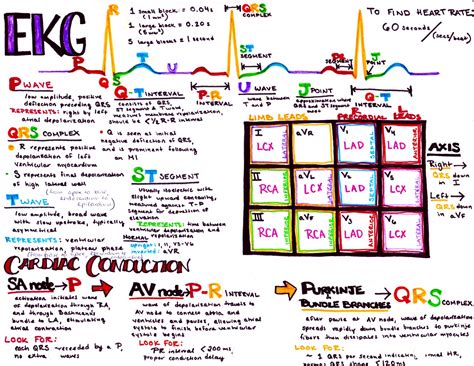 EKG
P
R
Q
S
T
U
1 small block = 0.04s
(1 mm²)
1 large block = 0.20s
(5 mm²)
5 large blocks = 1 second
QRS
COMPLEX
TO FIND HEART RATE:
60 seconds/
ST
SEGMENT
P-R
J
POINT
Q-T
INTERVAL
P WAVE
low amplitude, positive
deflection preceding QRS
REPRESENTS: right & left
atrial depolarization
Q-T INTERVAL
consists of QRS,
ST segment & T wave,
P-R
INTERVAL
U WAVE
between T
and P
J POINT
approximation where
QRS COMPLEX
R represents positive
depolarization of left
ventricular myocardium
S represents final depolarization
of high lateral wall
Q is seen as initial
negative deflection of QRS,
and is prominent following
an MI
ST
SEGMENT
usually isoelectric with
slight upward concavity,
measured against T-P
segment for depression or
elevation
REPRESENTS: time between
ventricular depolarization
and repolarization
T WAVE
low amplitude, broad wave
with slow upstroke, typically
asymmetrical
REPRESENTS: ventricular
repolarization phase
NORMAL
upright: I, II, V3-V6
inverted: aVR
LIMB LEADS
PRECORDIAL LEADS
I LCX LATERAL
aVR
V1 LAD SEPTAL
V4 LAD ANTERIOR
II RCA INFERIOR
aVL LCX LATERAL
V2 LAD SEPTAL
V5 LCX LATERAL
III RCA INFERIOR
aVF RCA INFERIOR
V3 LAD ANTERIOR
V6 LCX LATERAL
AXIS
Right
QRS
down
in I
Left
QRS
down
in aVF
CARDIAC CONDUCTION
SA node → P
activation initiates wave
of depolarization through RA,
and through Bachmann's
bundle to LA, stimulating
atrial contraction
LOOK FOR:
each QRS preceded by a P,
no extra waves
AV node → P-R INTERVAL
wave of depolarization travels to
AV node to connect atria and
ventricles and pauses, allowing atrial
systole to finish before ventricular
systole begins
LOOK FOR:
PR interval < 200ms,
proper conduction delay
PURKINJE
BUNDLE BRANCHES → QRS COMPLEX
after pause at AV node, wave of depolarization
spreads rapidly down bundle branches to purkinje
fibers then dissipates into ventricular myocytes
LOOK FOR:
~ 1 QRS per second indicating normal HR,
normal QRS shape (≤120ms)